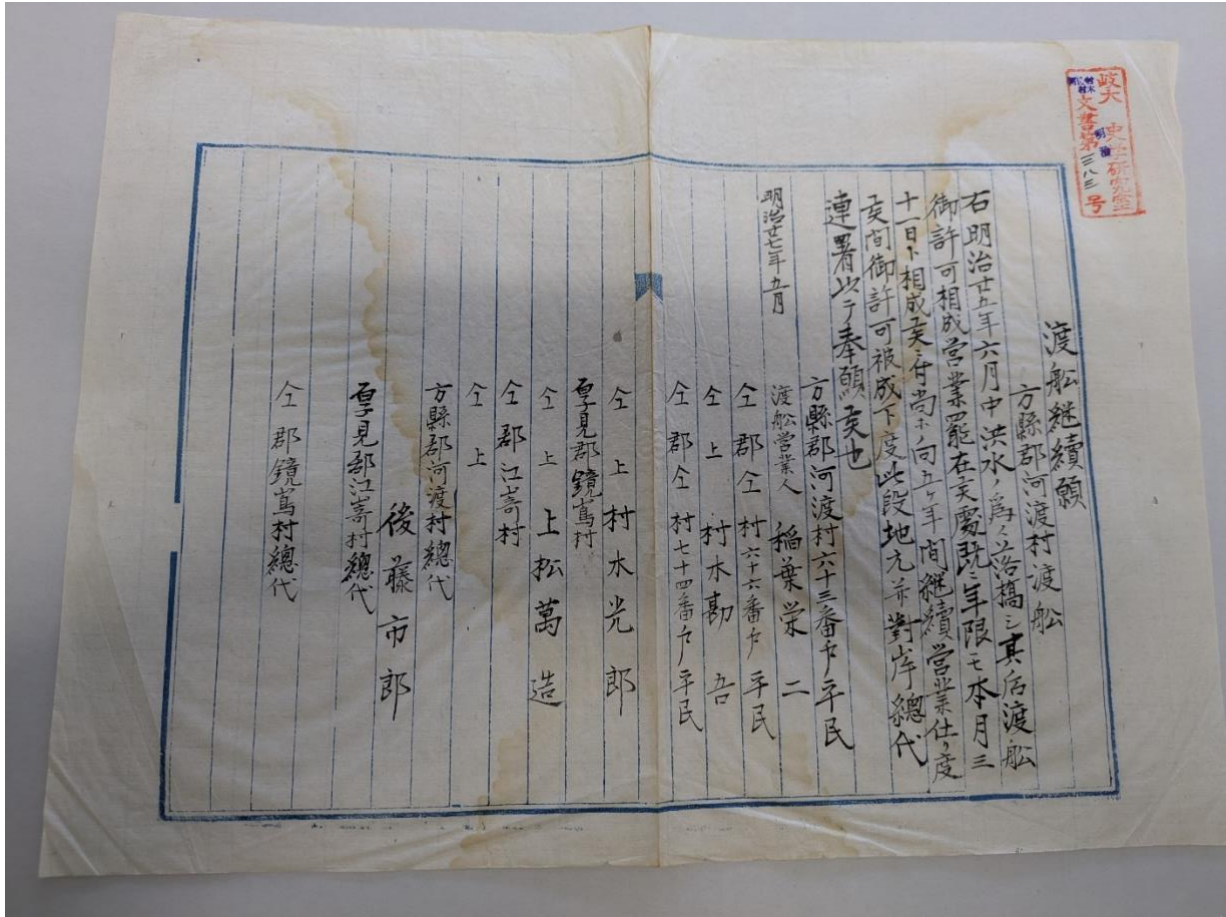 岐大 史学研究室
文書 第三八三号
明治
渡船継續願
方縣郡河渡村渡船
右明治廿五年六月中洪水ノ為メ落橋シ其后渡船
御許可相成営業罷在候處既ニ年限モ本月三
十一日ト相成候ニ付尚ホ向五ヶ年間継續営業仕リ度
候間御許可被成下度此段地元并對岸總代
連署以テ奉願候也
明治廿七年五月
方縣郡河渡村六十三番戸平民
渡船営業人 稲葉栄二
仝郡仝村六十六番戸平民
仝上 村木勘吾
仝郡仝村七十四番戸平民
仝上 村木光郎
厚見郡鏡嶌村
仝上 上松萬造
仝郡江嵜村
仝上
方縣郡河渡村總代
後藤市郎
厚見郡江嵜村總代
仝郡鏡嶌村總代